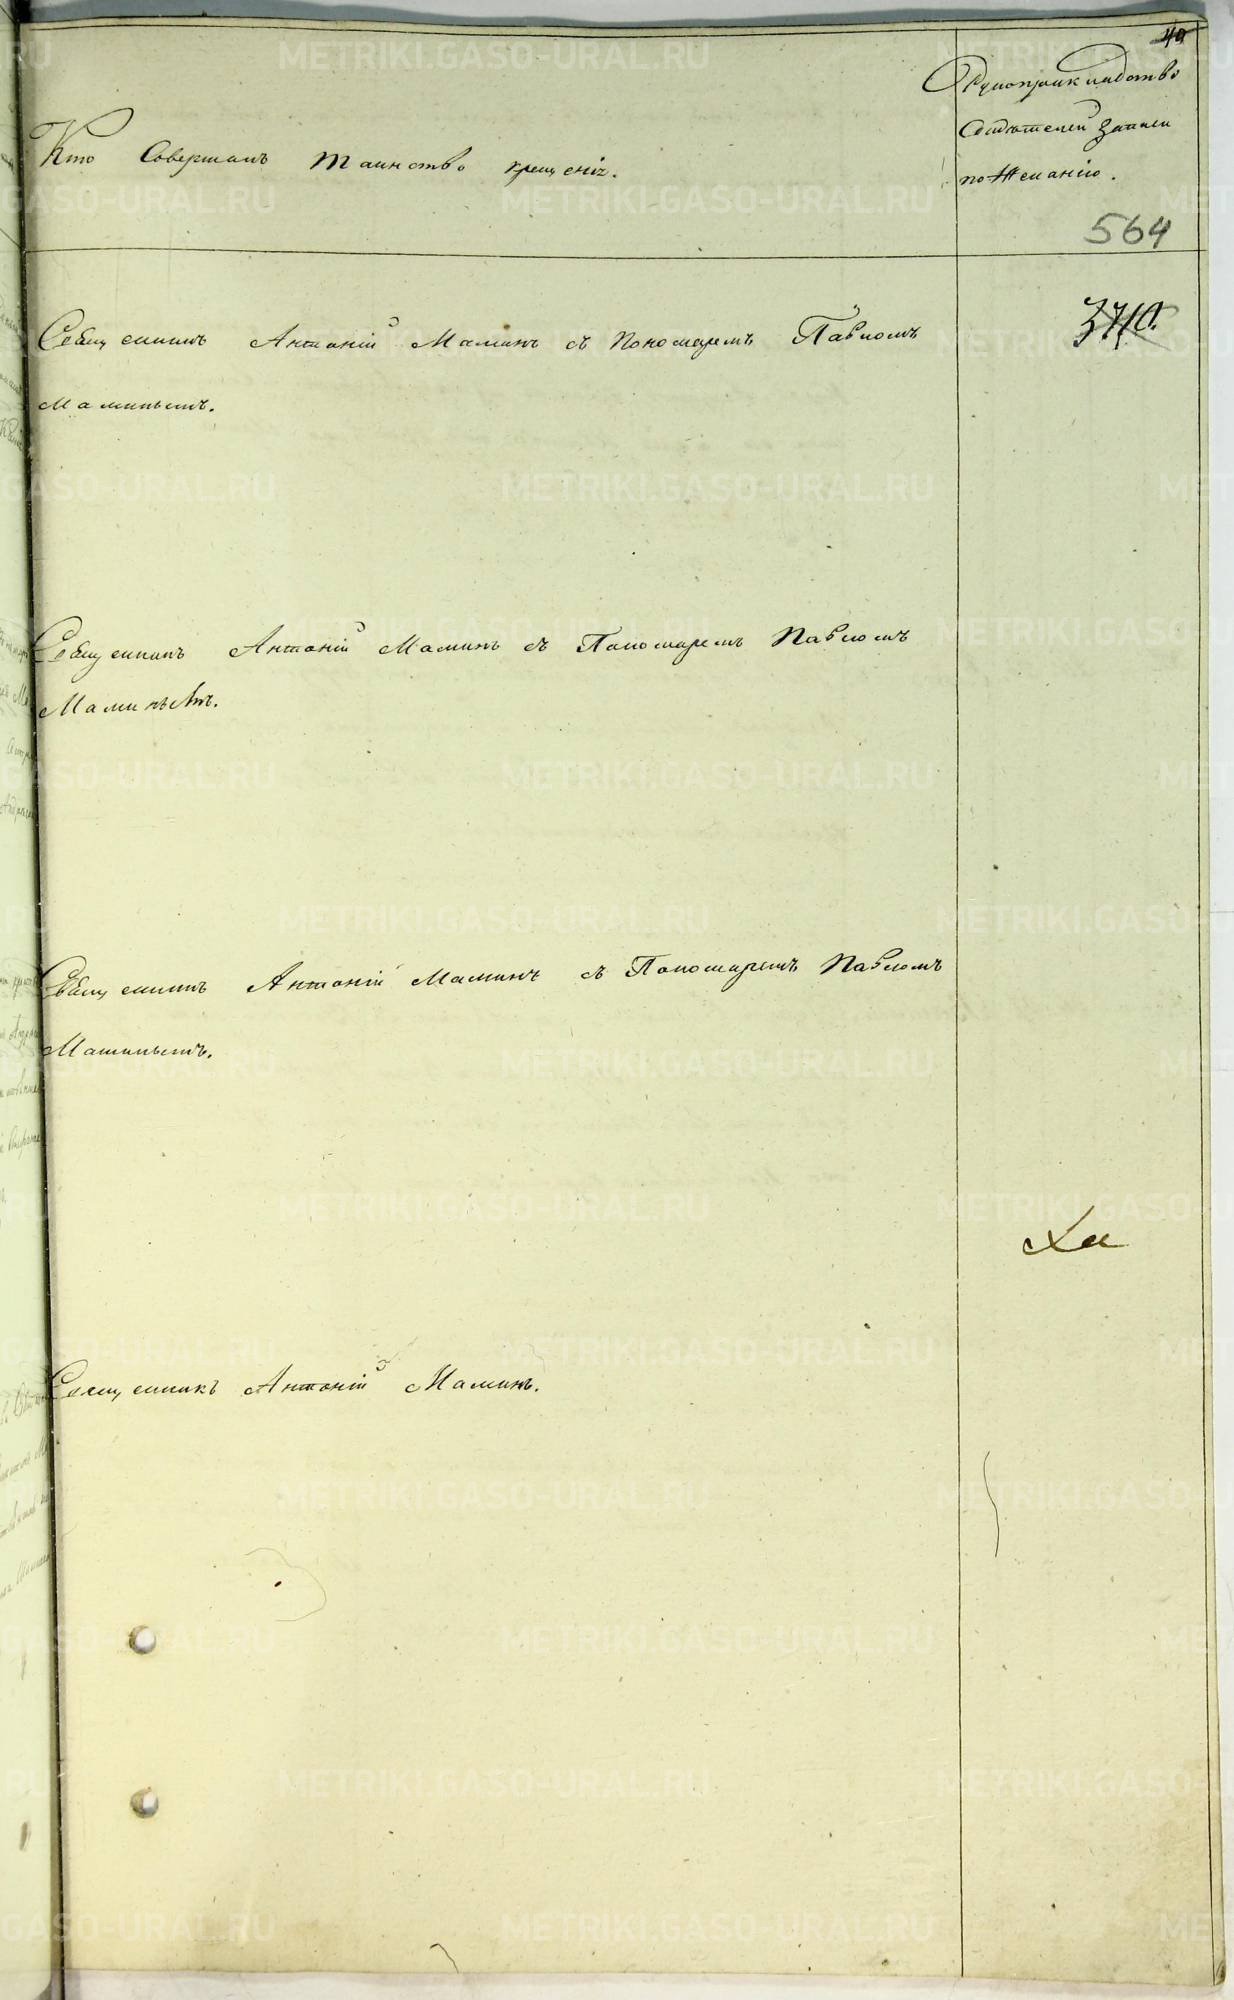 Кто Совершалъ таинство крещенія.
Рукоприкладство
Свидѣтелей записи
по Желанію.
564
Священникъ Антоній Маминъ съ Пономаремъ Павломъ
Маминымъ.
Священникъ Антоній Маминъ съ Пономаремъ Павломъ
Маминымъ.
Священникъ Антоній Маминъ съ Пономаремъ Павломъ
Маминымъ.
Священникъ Антоній Маминъ.
METRIKI.GASO-URAL.RU